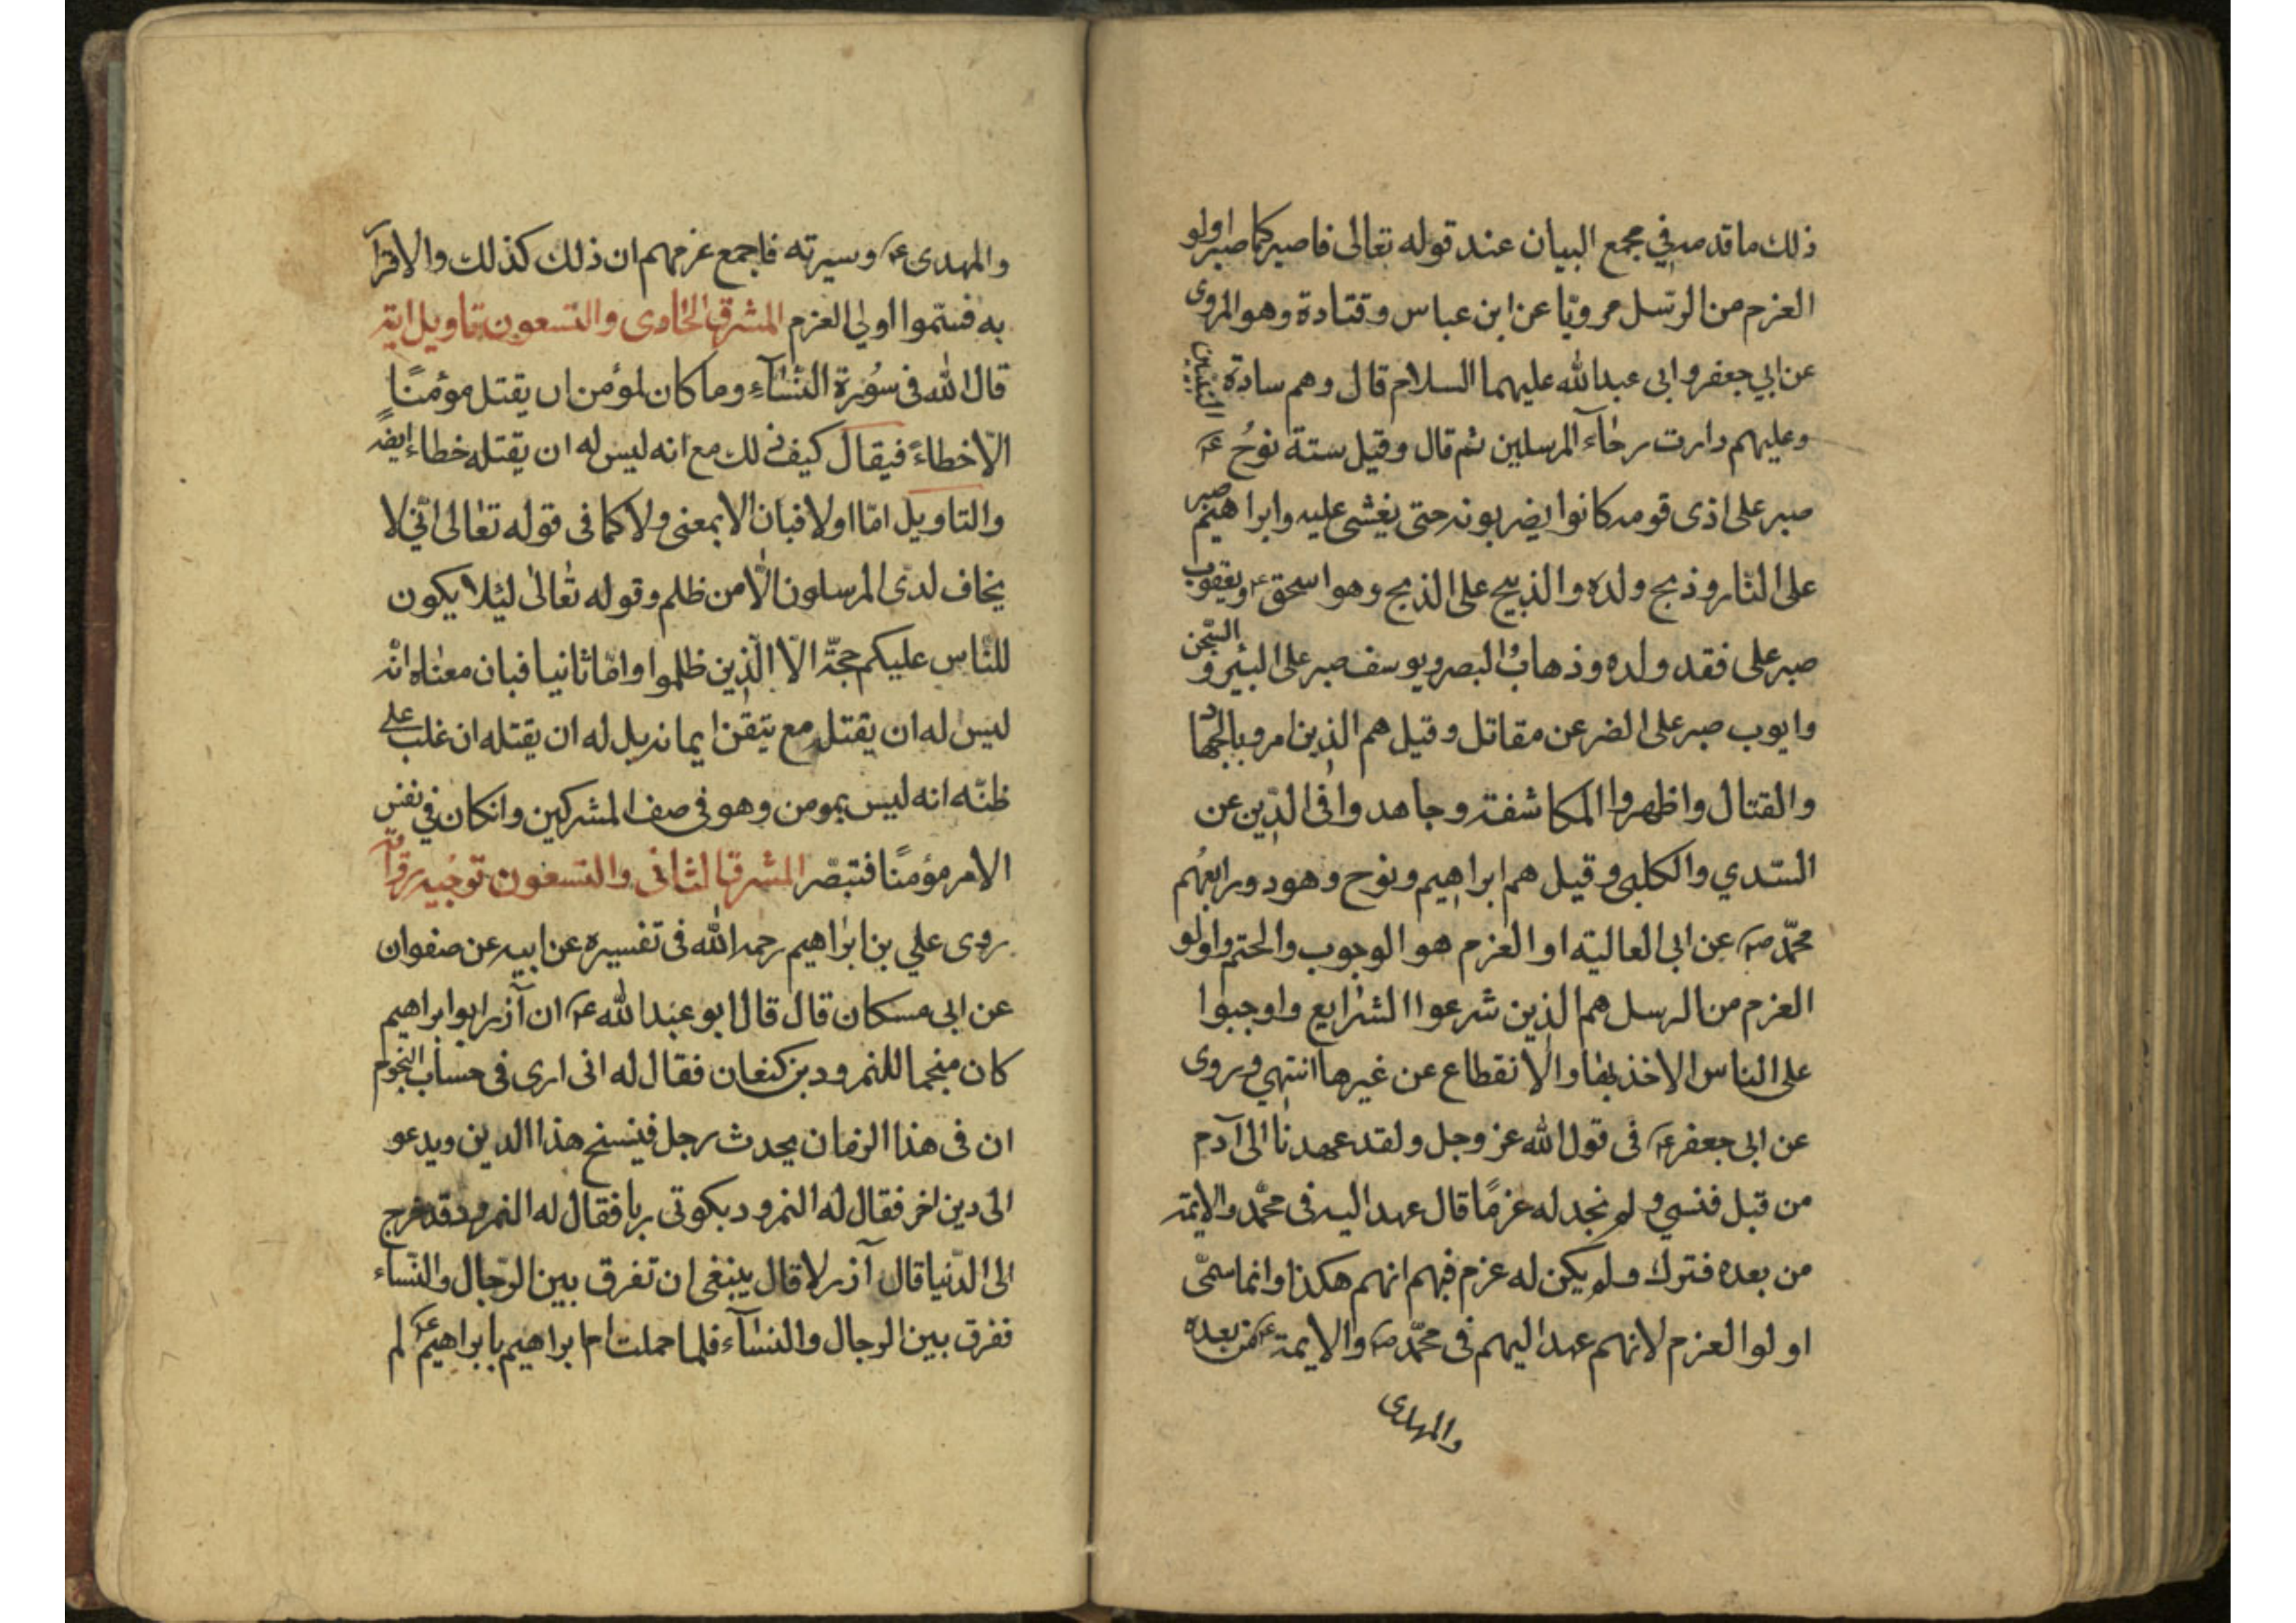 ذلك ما قدمه في مجمع البيان عند قوله تعالى فاصبر كما صبر اولو
العزم من الرسل مرويّا عن ابن عباس وقتادة وهو المروى
عن ابي جعفر وابى عبد الله عليهما السلام قال وهم سادة النبيين
وعليهم دارت رحاء المرسلين ثم قال وقيل ستة نوحُ ع
صبر على اذى قومه كانوا يضربونه حتى يغشى عليه وابراهيم صبر
على النّار وذبح ولده والذبيح على الذبح وهو اسحق ع ويعقوب
صبر على فقد ولده وذهاب البصر ويوسف صبر على البئر و السّجن
وايوب صبر على الضر عن مقاتل وقيل هم الذين امروا بالجهاد
والقتال واظهروا المكاشفة وجاهدوا في الدّين عن
السّدي والكلبى وقيل هم ابراهيم ونوح وهود ورابعُهم
محمّد ص عن ابى العالية او العزم هو الوجوب والحتم واولو
العزم من الرسل هم الذين شرعوا الشرايع واوجبوا
على الناس الاخذ بها والانقطاع عن غيرها انتهى وروى
عن ابى جعفر ع فى قول الله عز وجل ولقد عهدنا الى آدم
من قبل فنسي ولم نجد له عزمًا قال عهد اليه فى محمّد والايمة
من بعده فترك ولم يكن له عزم فيهم انهم هكذا وانما سمّى
اولوا العزم لانهم عهد اليهم فى محمّد ص والايمة ع من بعده
والمهدى
والمهدى ع وسيرته فاجمع عزمهم ان ذلك كذلك والاقرار
به فسمّوا اولي العزم المشرق الحادى والتسعون تاويل اية
قال الله فى سُورة النسآء وما كان لمؤمن ان يقتل مؤمنًا
الّا خطاءً فيقال كيف ذلك مع انه ليس له ان يقتله خطاء ايضا
والتاويل امّا اولا فبان الا بمعنى ولا كما فى قوله تعالى انّي لا
يخاف لدى المرسلون الّا من ظلم وقوله تعالى لئلا يكون
للنّاس عليكم حجّة الّا الّذين ظلموا وامّا ثانيا فبان معناه انّه
ليس له ان يقتله مع تيقن ايمانه بل له ان يقتله ان غلب على
ظنّه انه ليس بمومن وهو فى صف المشركين وانكان في نفس
الامر مؤمنًا فتبصّر المشرق الثانى والتسعون توجيه رواية
روى علي بن ابراهيم رحمه الله فى تفسيره عن ابيه عن صفوان
عن ابى مسكان قال قال ابو عبد الله ع ان آزر ابو ابراهيم
كان منجما للنمرود بن كنعان فقال له انى ارى فى حساب النجوم
ان فى هذا الزمان يحدث رجل فينسخ هذا الدين ويدعو
الى دين اخر فقال له النمرود بكوتى ربا فقال له النمرود قد خرج
الى الدّنيا قال آزر لا قال ينبغى ان تفرق بين الرّجال والنّساء
ففرق بين الرجال والنسآء فلما حملت ام ابراهيم بابراهيم ع لم